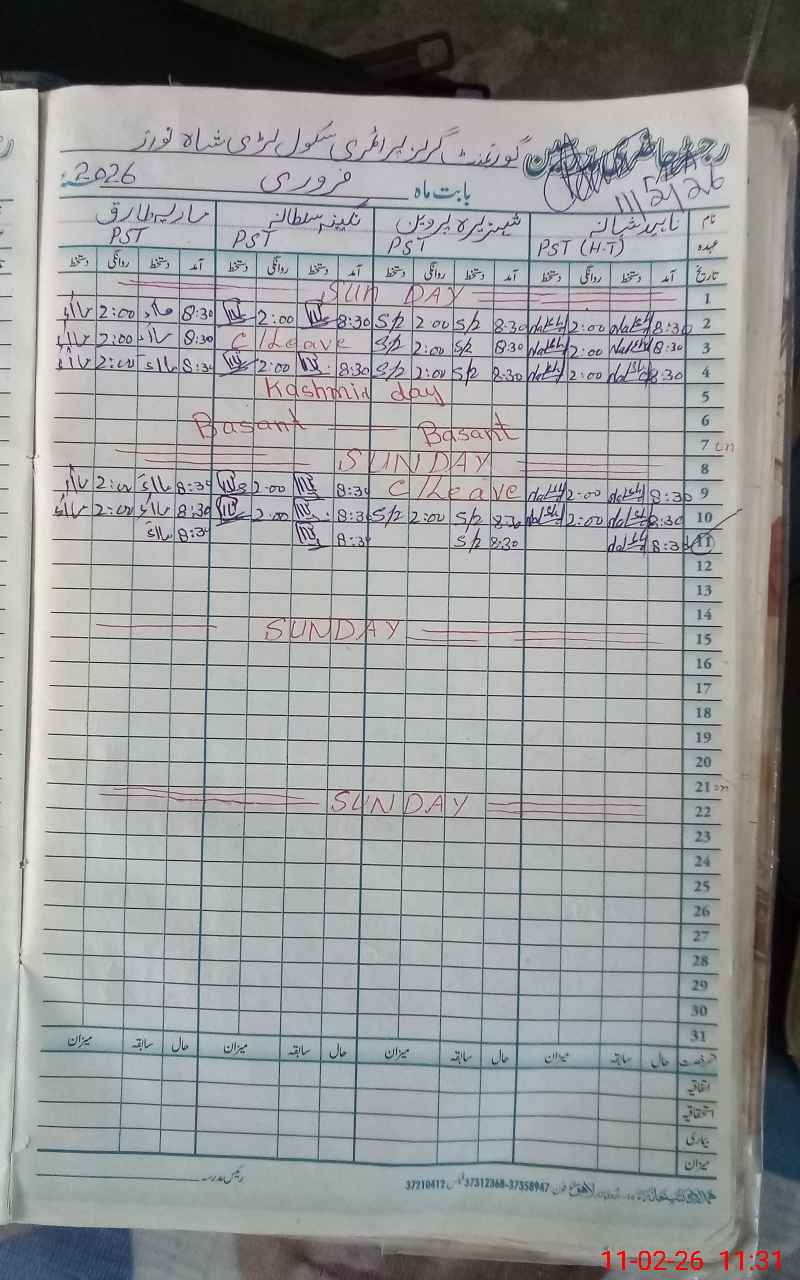 رجسٹر حاضری
گورنمنٹ گرلز پرائمری سکول لڑی شاہ نواز
11/2/26
بابت ماہ فروری 2026ء
نام ناہید شبانہ شہزیرہ پروین نگینہ سلطانہ ماریہ طارق
عہدہ PST (H-T) PST PST PST
تاریخ آمد دستخط روانگی دستخط آمد دستخط روانگی دستخط آمد دستخط روانگی دستخط آمد دستخط روانگی دستخط
1 SUN DAY
2 8:30 2:00 8:30 S/2 2:00 S/2 8:30 2:00 8:30 2:00
3 8:30 2:00 8:30 S/2 2:00 S/2 C/Leave 8:30 2:00
4 8:30 2:00 8:30 S/2 2:00 S/2 8:30 2:00 8:30 2:00
5 Kashmir day
6 Basant
7 Basant
8 SUNDAY
9 8:30 2:00 C/Leave 8:30 2:00 8:30 2:00
10 8:30 2:00 8:30 S/2 2:00 S/2 8:30 2:00 8:30 2:00
11 8:30 8:30 S/2 8:30 8:30
12
13
14
15 SUNDAY
16
17
18
19
20
21
22 SUNDAY
23
24
25
26
27
28
29
30
31
رخصت حال سابقہ میزان حال سابقہ میزان حال سابقہ میزان حال سابقہ میزان
اتفاقیہ
استحقاقیہ
بیماری
میزان
رئیس مدرسہ
لاہور فون 37312368-37358947 فیکس 37210412
11-02-26 11:31